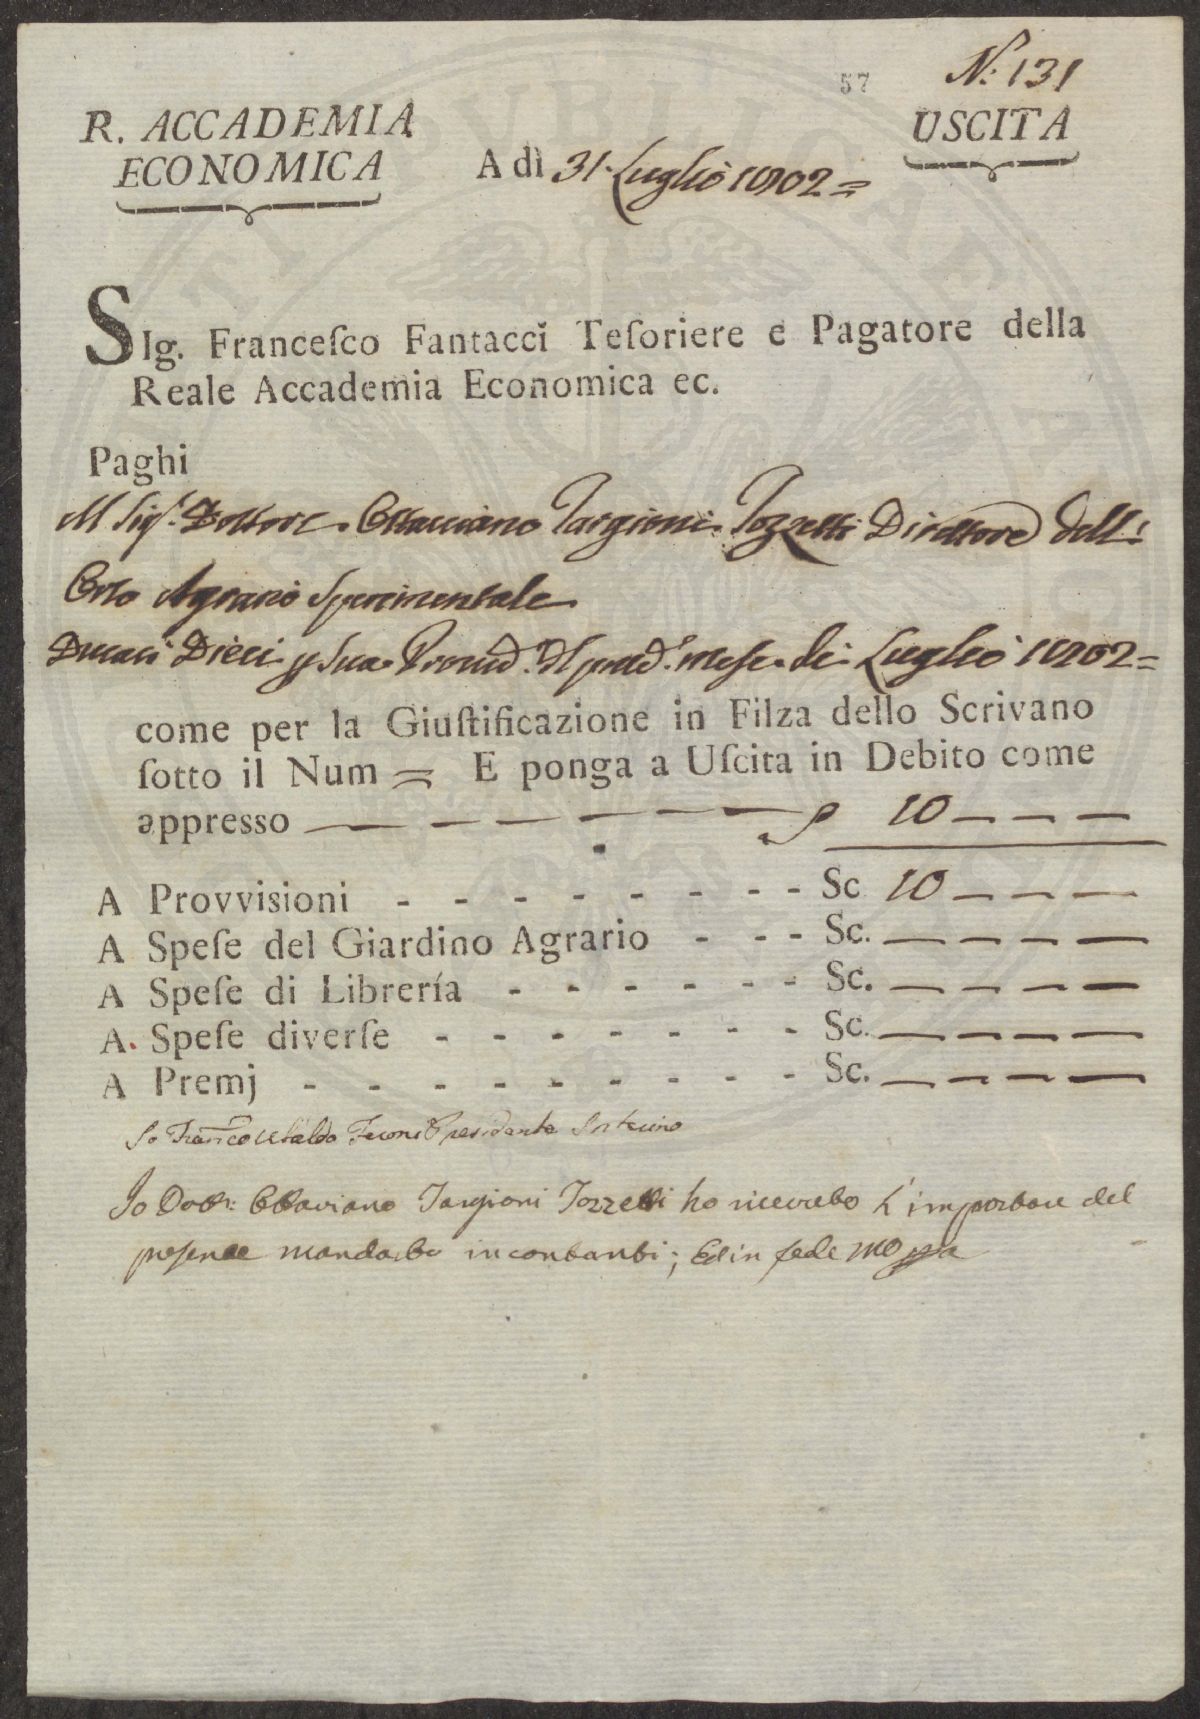 57
N: 131
R. ACCADEMIA
ECONOMICA
USCITA
A dì 31. Luglio 1802 =
SIg. Franceſco Fantacci Teſoriere e Pagatore della
Reale Accademia Economica ec.
Paghi
Al Sig.r Dottore Ottaviano Targioni Tozzetti Direttore dell'
Orto Agrario Sperimentale
Ducati Dieci p Sua Provvid.e del pred.o mese di Luglio 1802 =
come per la Giuſtificazione in Filza dello Scrivano
ſotto il Num = E ponga a Uſcita in Debito come
appresso 10
A Provvisioni - - - - - - - - Sc 10
A Speſe del Giardino Agrario - - - Sc.
A Speſe di Librería - - - - - - Sc.
A Speſe diverſe - - - - - - - Sc.
A Premj - - - - - - - - - Sc.
Io Franco Ubaldo Feroni Presidente Interino
Io Dottr: Ottaviano Targioni Tozzetti ho ricevuto l'importare del
presente mandato in contanti; Ed in fede mo ppa